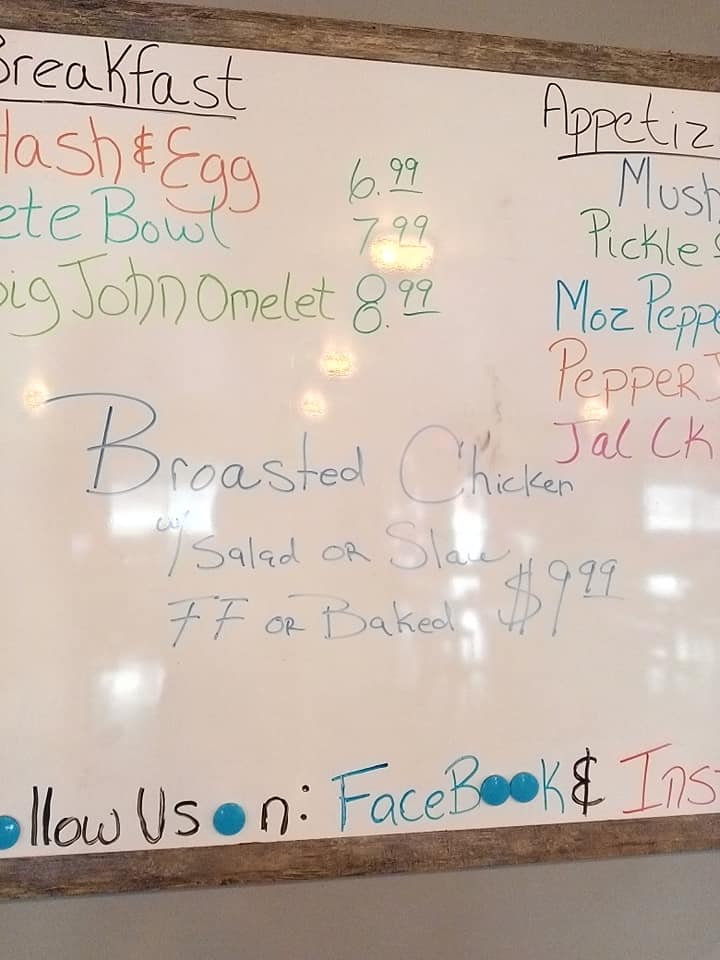 Breakfast
Hash & Egg 6.99
ete Bowl 7.99
Big John Omelet 8.99
Appetiz
Mush
Pickle S
Moz Peppe
Pepper J
Jal Ck
Broasted Chicken
w/ Salad OR Slaw
FF OR Baked $9.99
ollow Us on: FaceBook & Ins